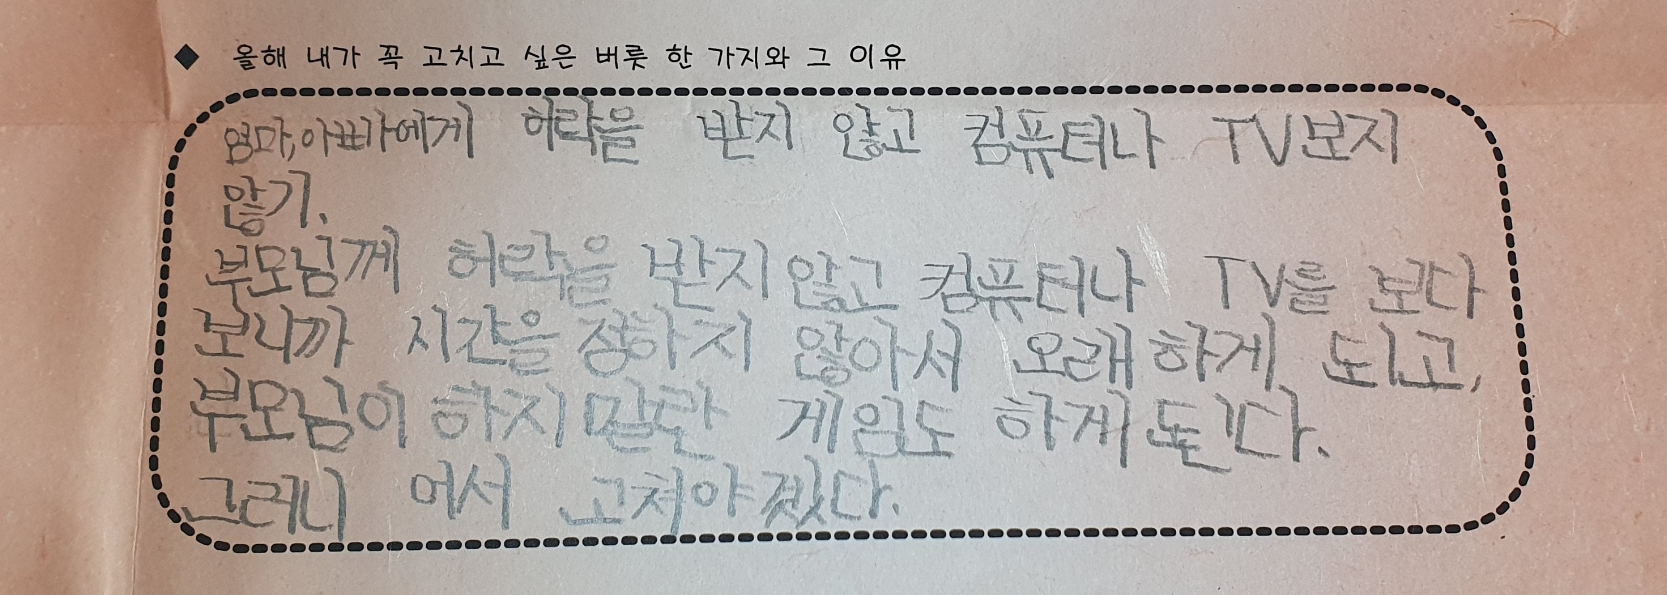 ◆ 올해 내가 꼭 고치고 싶은 버릇 한 가지와 그 이유
엄마,아빠에게 허락을 받지 않고 컴퓨터나 TV보지
않기.
부모님께 허락을 받지 않고 컴퓨터나 TV를 보다
보니까 시간을 정하지 않아서 오래 하게 되고,
부모님이 하지 말란 게임도 하게 된다.
그러니 어서 고쳐야겠다.